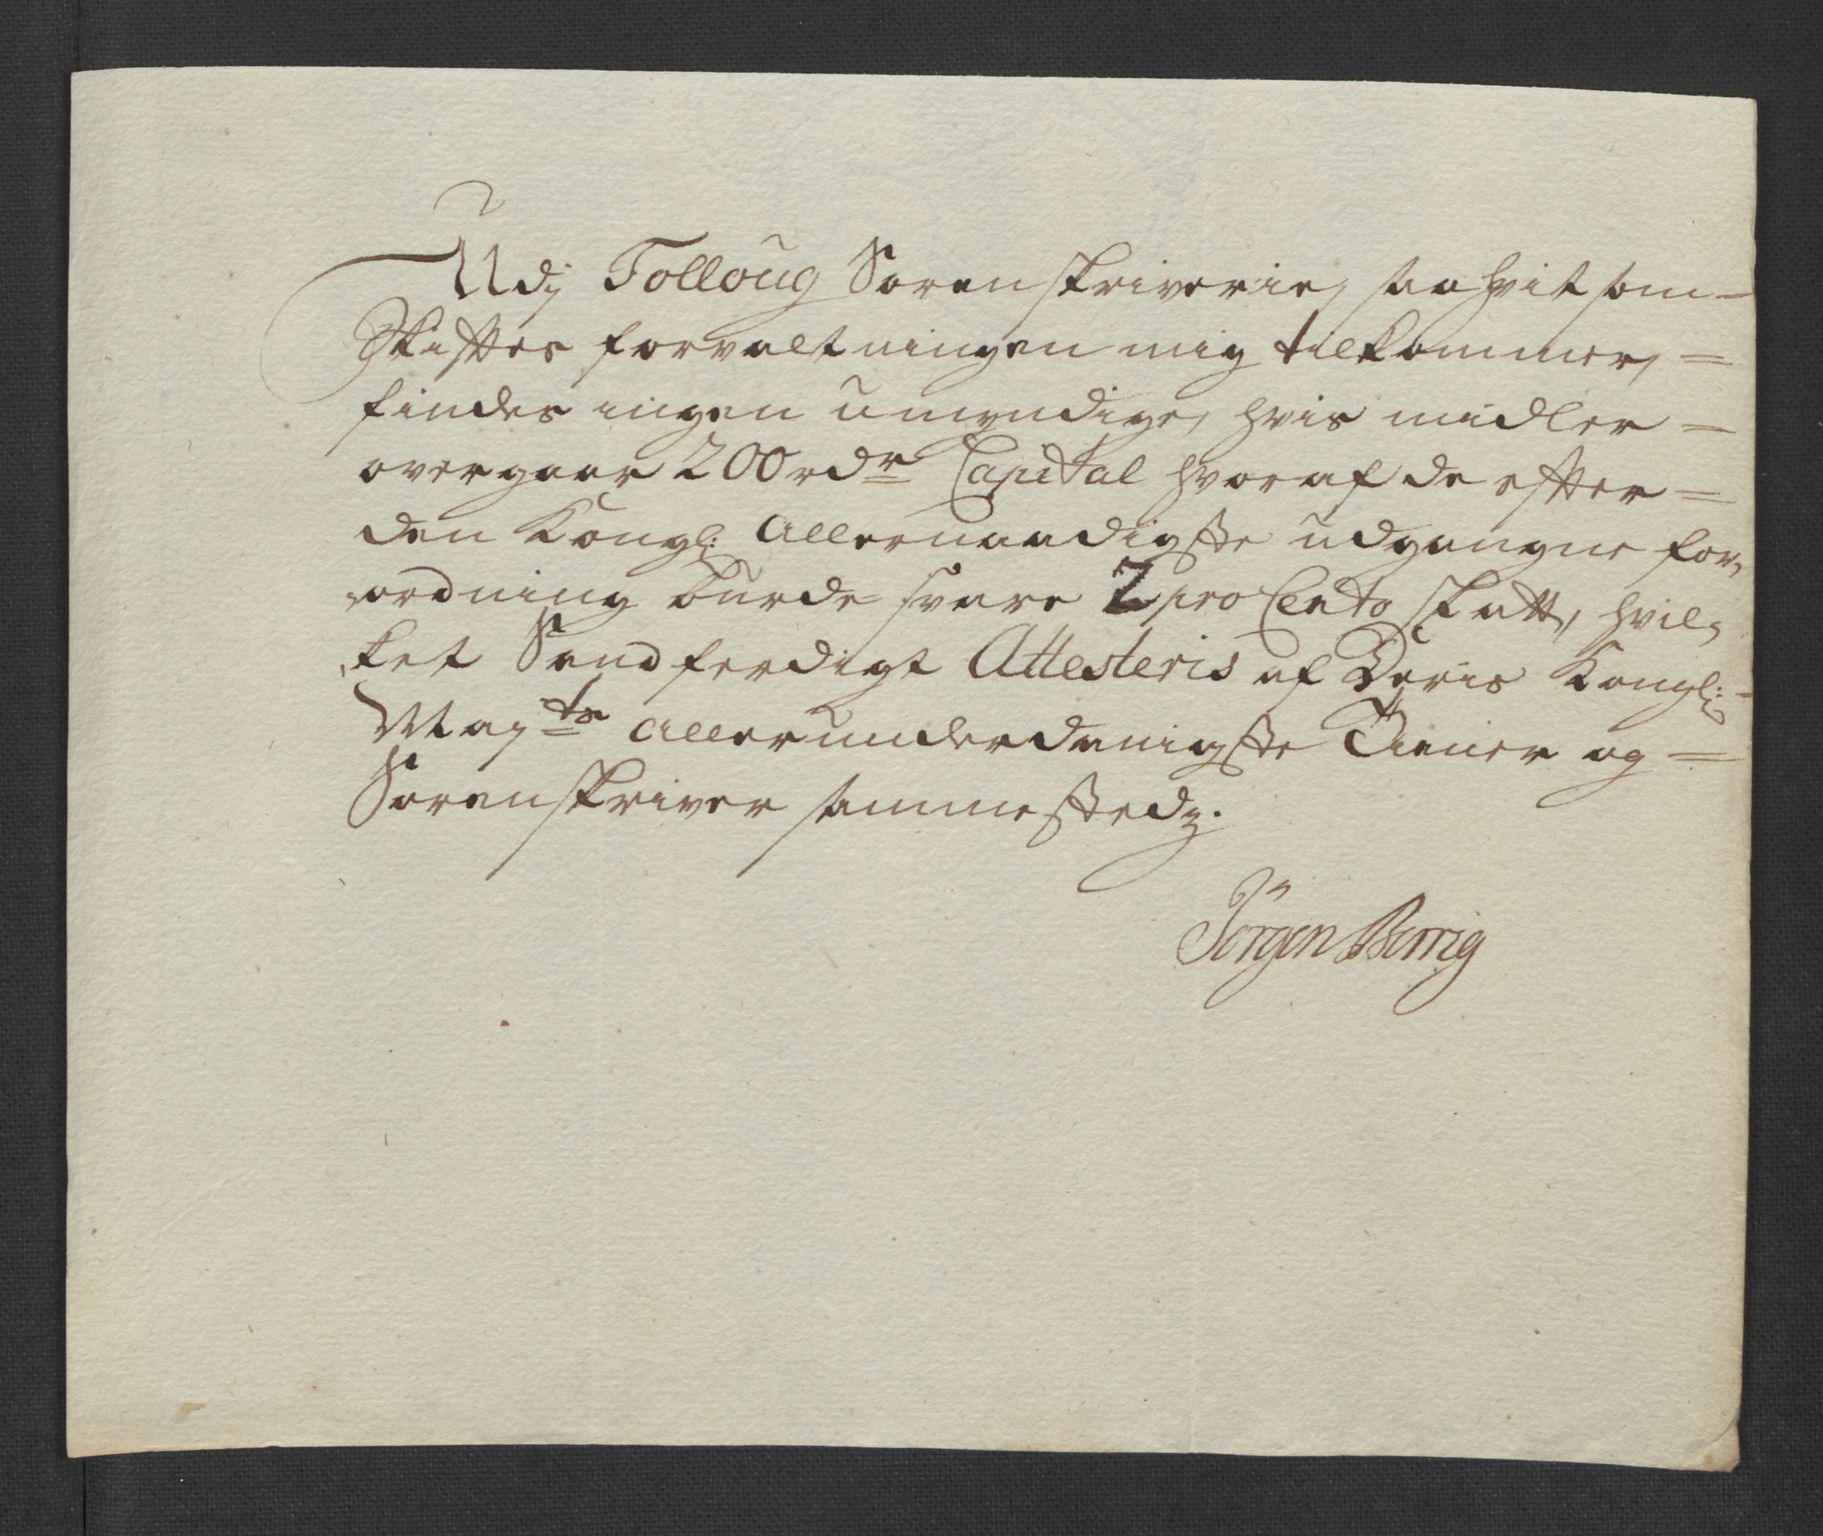 Udj Folloug Sorenskriverie, saahvit som-
Skiftes forvaltningen mig tilkommer, =
findes ingen umyndige, hvis midler =
overgaar 200 rdr Capital hvoraf de efter =
den Kongl: Allernaadigste udgangne for,
ordning burde svare 2 pro Cento skatt, hvil,
ket Sandferdigt Attesteris af Deris Kongl:
Mayts allerunderdanigste Tiener og =
Sorenskriver sammestedz.
Jörgen Berrig